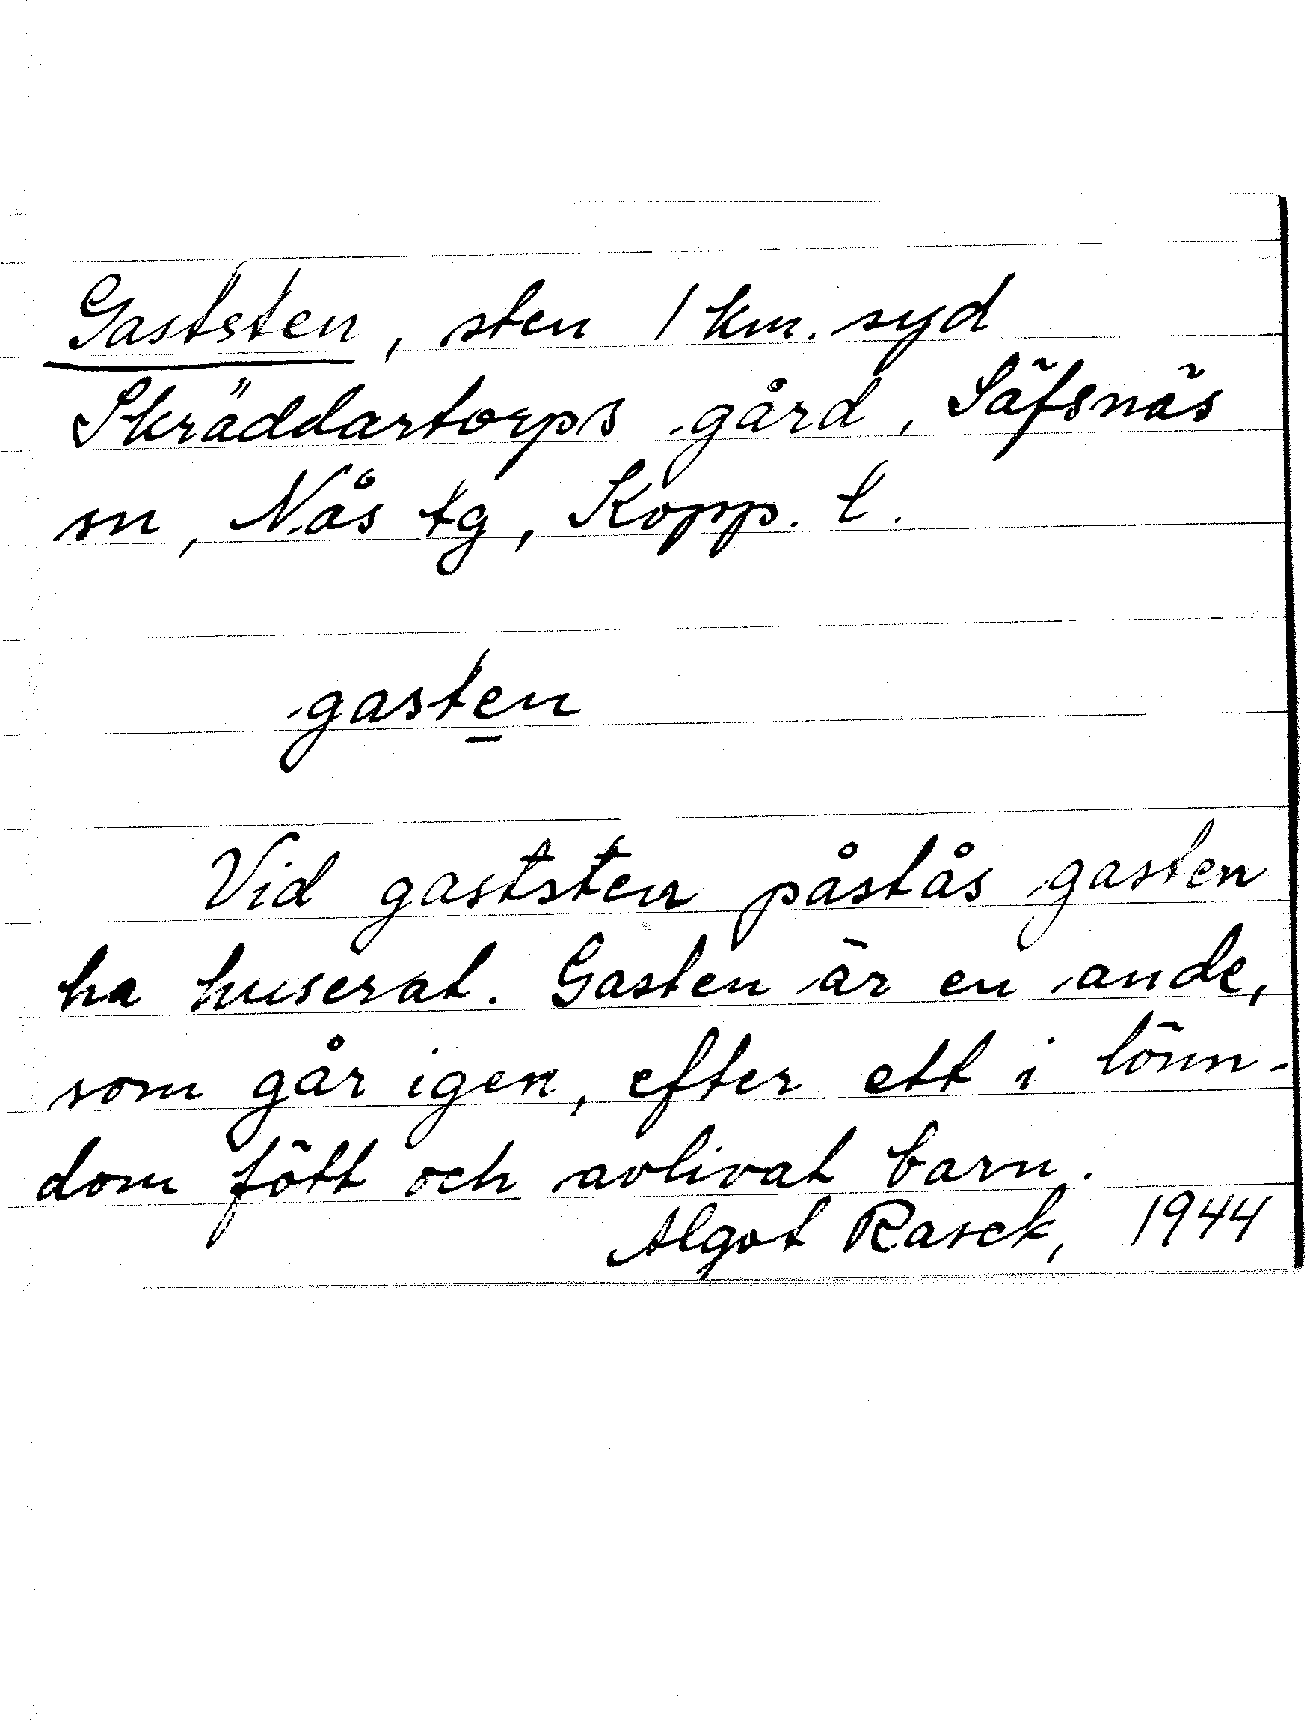 Gaststen, sten 1 km. syd
Skräddartorps gård, Säfsnäs
sn, Nås tg, Kopp. l.
gasten
Vid gaststen påstås gasten
ha huserat. Gasten är en ande,
som går igen, efter ett i lönn-
dom fött och avlivat barn.
Algot Rasck, 1944